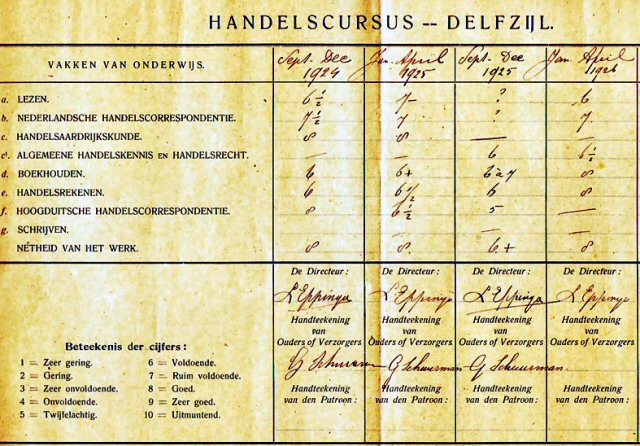 HANDELSCURSUS -- DELFZIJL.
VAKKEN VAN ONDERWIJS. Sept. Dec 1924 Jan. April 1925 Sept. Dec 1925 Jan. April 1926
a. LEZEN. 6½ 7- ? 6
b. NEDERLANDSCHE HANDELSCORRESPONDENTIE. 7½ 7 ? 7
c. HANDELSAARDRIJKSKUNDE. 8 8 — —
c¹. ALGEMEENE HANDELSKENNIS EN HANDELSRECHT. — — 6 6½
d. BOEKHOUDEN. 6 6+ 6 à 7 8
e. HANDELSREKENEN. 6 6½ 6 8
f. HOOGDUITSCHE HANDELSCORRESPONDENTIE. 8 6½ 5 —
g. SCHRIJVEN. — — — —
NETHEID VAN HET WERK. 8 8. 6+ 8
De Directeur: De Directeur: De Directeur: De Directeur:
L Eppinga L Eppinga L Eppinga L Eppinga
Handteekening Handteekening Handteekening Handteekening
van van van van
Ouders of Verzorgers Ouders of Verzorgers Ouders of Verzorgers Ouders of Verzorgers
G Schuurman G Schuurman G Schuurman.
Handteekening Handteekening Handteekening Handteekening
van den Patroon: van den Patroon: van den Patroon: van den Patroon:
Beteekenis der cijfers:
1 = Zeer gering. 6 = Voldoende.
2 = Gering. 7 = Ruim voldoende.
3 = Zeer onvoldoende. 8 = Goed.
4 = Onvoldoende. 9 = Zeer goed.
5 = Twijfelachtig. 10 = Uitmuntend.